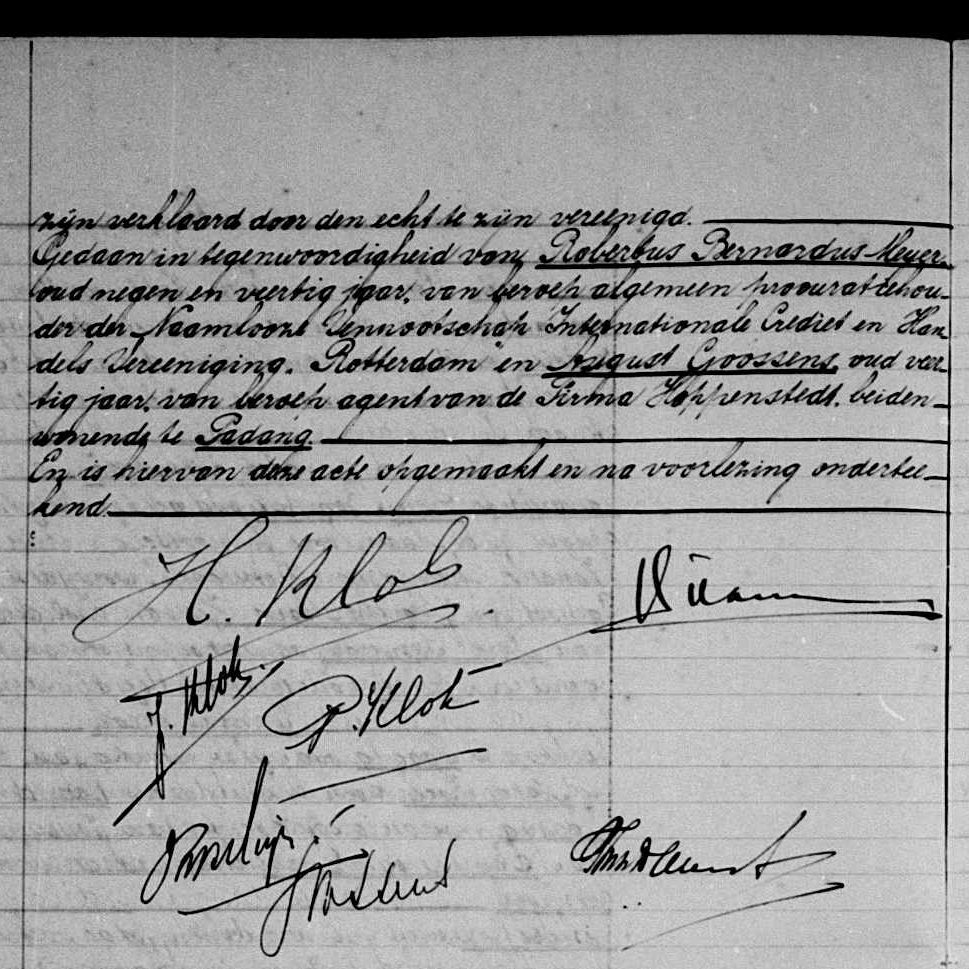 zijn verklaard door den echt te zijn vereenigd.
Gedaan in tegenwoordigheid van Robertus Bernardus Meyer
oud negen en veertig jaar, van beroep algemeen procuratiehou-
der der Naamlooze Vennootschap Internationale Crediet en Han
dels Vereeniging. Rotterdam" en August Goossens, oud veer-
tig jaar, van beroep agent van de Firma Hoppenstedt, beiden
wonende te Padang.
En is hiervan deze acte opgemaakt en na voorlezing onderteе-
kend.
H. Klok
J. Klok. P. Klok